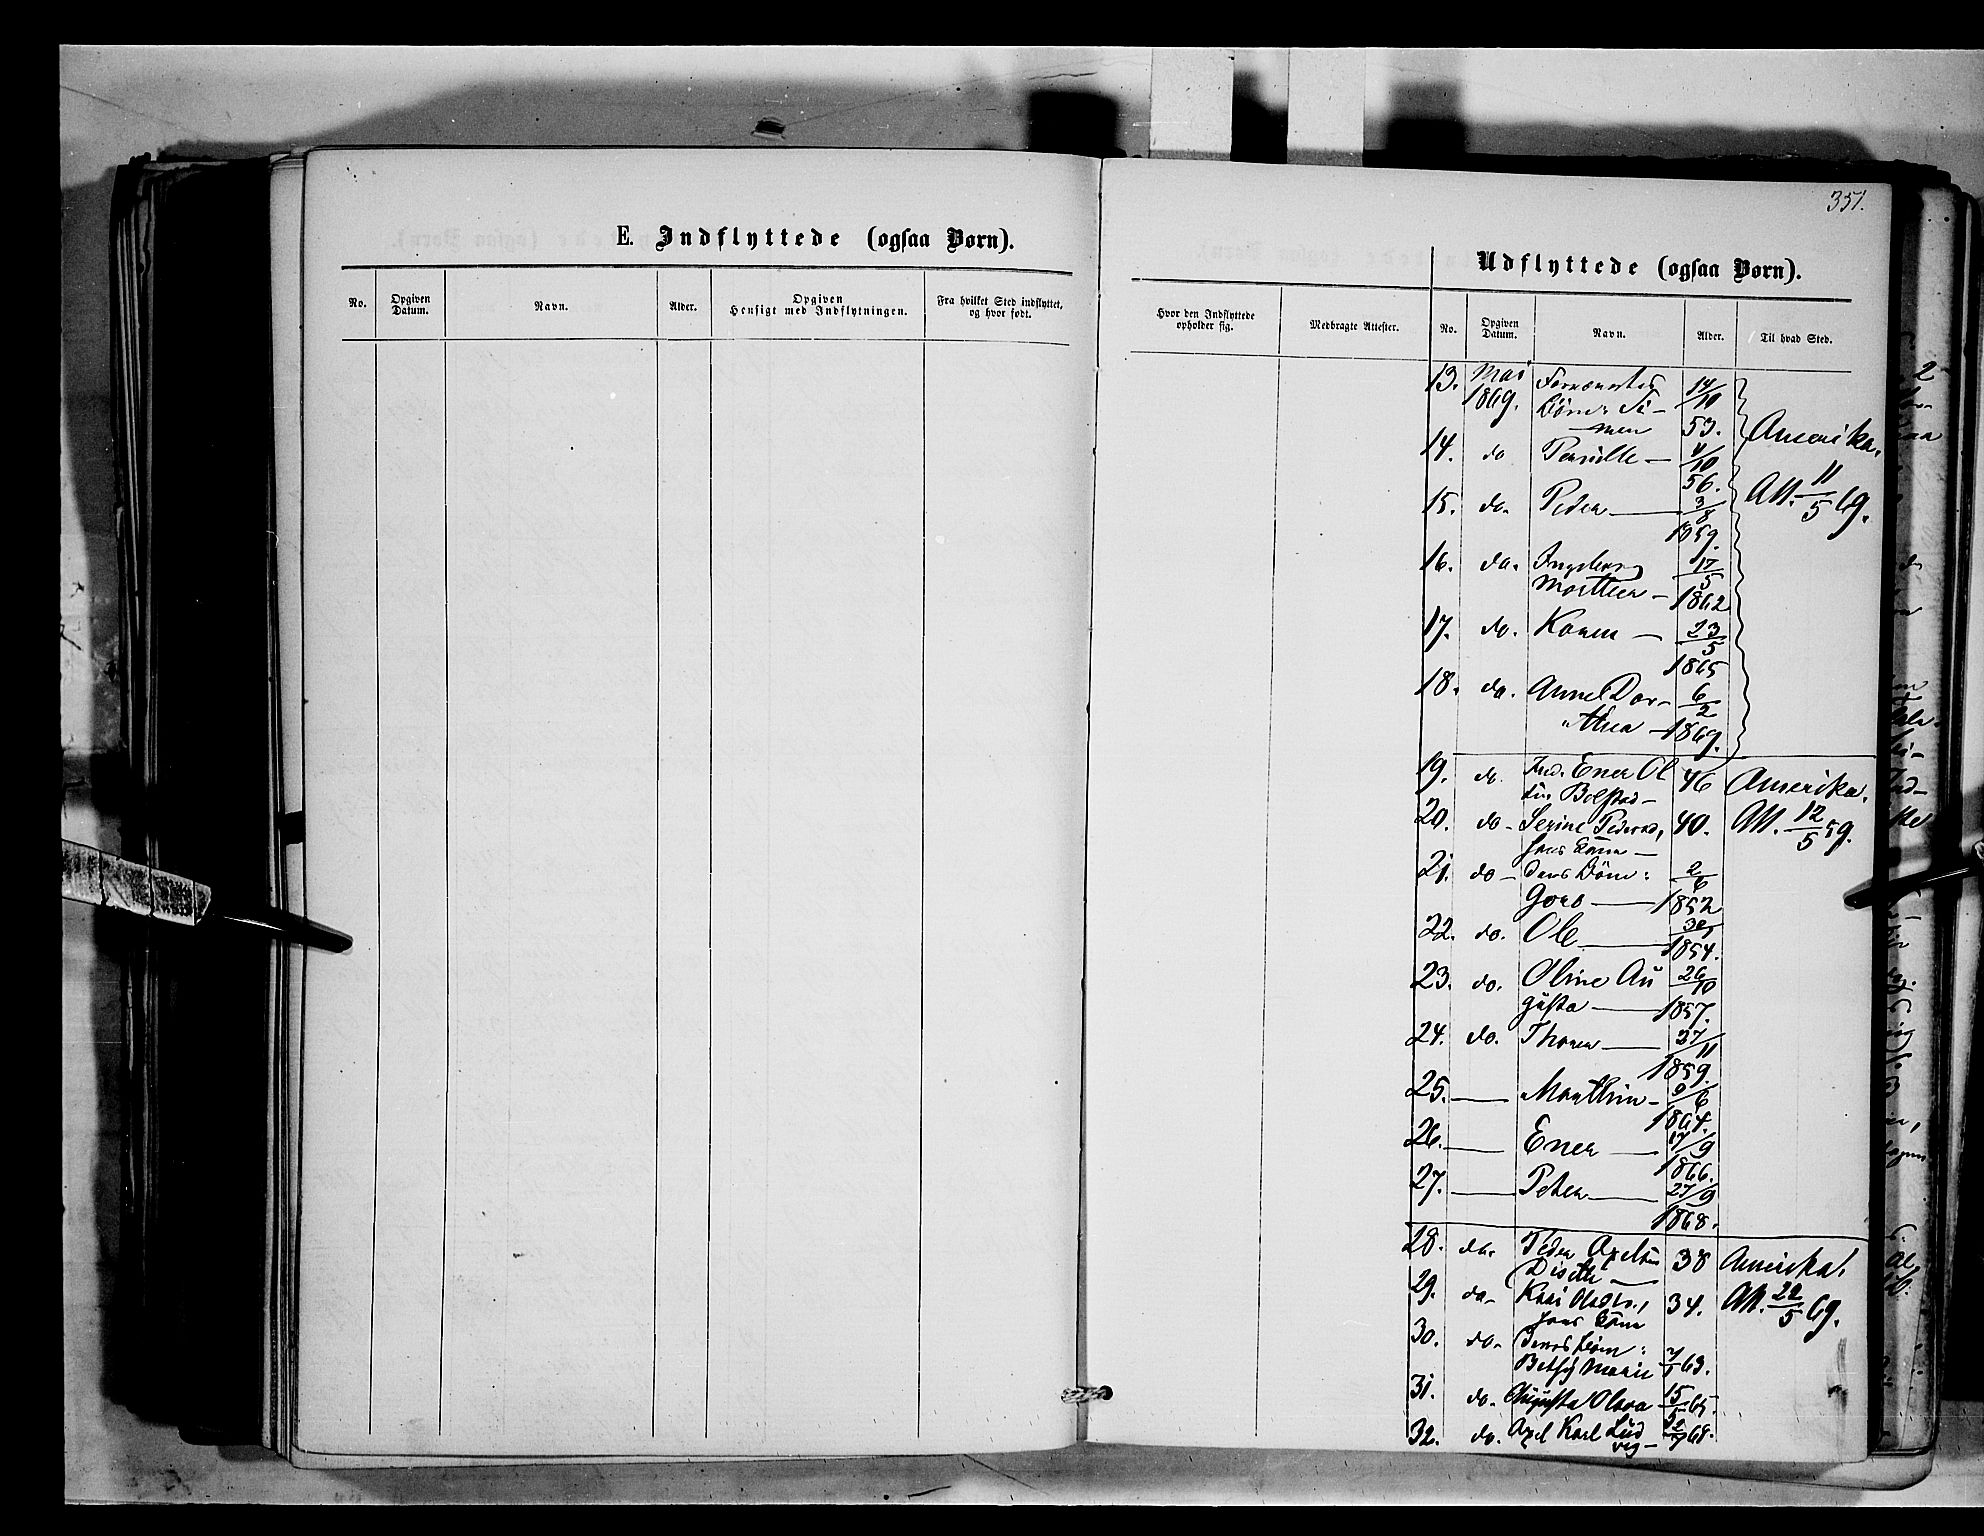 351.
E. Indflyttede (ogsaa Børn).
No.
Opgiven Datum.
Navn.
Alder.
Opgiven Hensigt med Indflytningen.
Fra hvilket Sted indflyttet, og hvor født.
Hvor den Indflyttede opholder sig.
Medbragte Attester.
Udflyttede (ogsaa Børn).
No.
Opgiven Datum.
Navn.
Alder.
Til hvad Sted.
13. Mai 1869. Børn: Si-
men 14/10 53. Amerika.
14. do Pernille — 4/10 56. Att. 11/5 69.
15. do. Peder — 3/8 1859.
16. do. Ingeborg
Marthea — 17/5 1862
17. do. Karen — 23/5 1865
18. do. Anne Dor-
thea — 6/2 1869.
19. do. Ind. Ener Ol
sen Bolstad — 46 Amerika.
20. do — Serine Pedersd.,
hans Kone — 40. Att. 12/5 59.
21. do — deres Børn:
Goro — 2/6 1852
22. do. Ole — 1854.
23. do. Oline Au
gusta — 26/10 1857.
24. do. Thorer — 1859.
25. — Marthin — 9/6 1864.
26. — Ener — 17/9 1866.
27. — Peter — 27/9 1868.
28. do. Peder Axelsen
Diseth — 38 Amerika.
29. do — Kari Olsdtr.,
hans Kone 34. Att. 22/5 69.
30. do — deres Børn:
Bethy Marie 63.
31. do. Augusta Olava 15/5 65.
32. do. Axel Karl Lud
vig — 68.